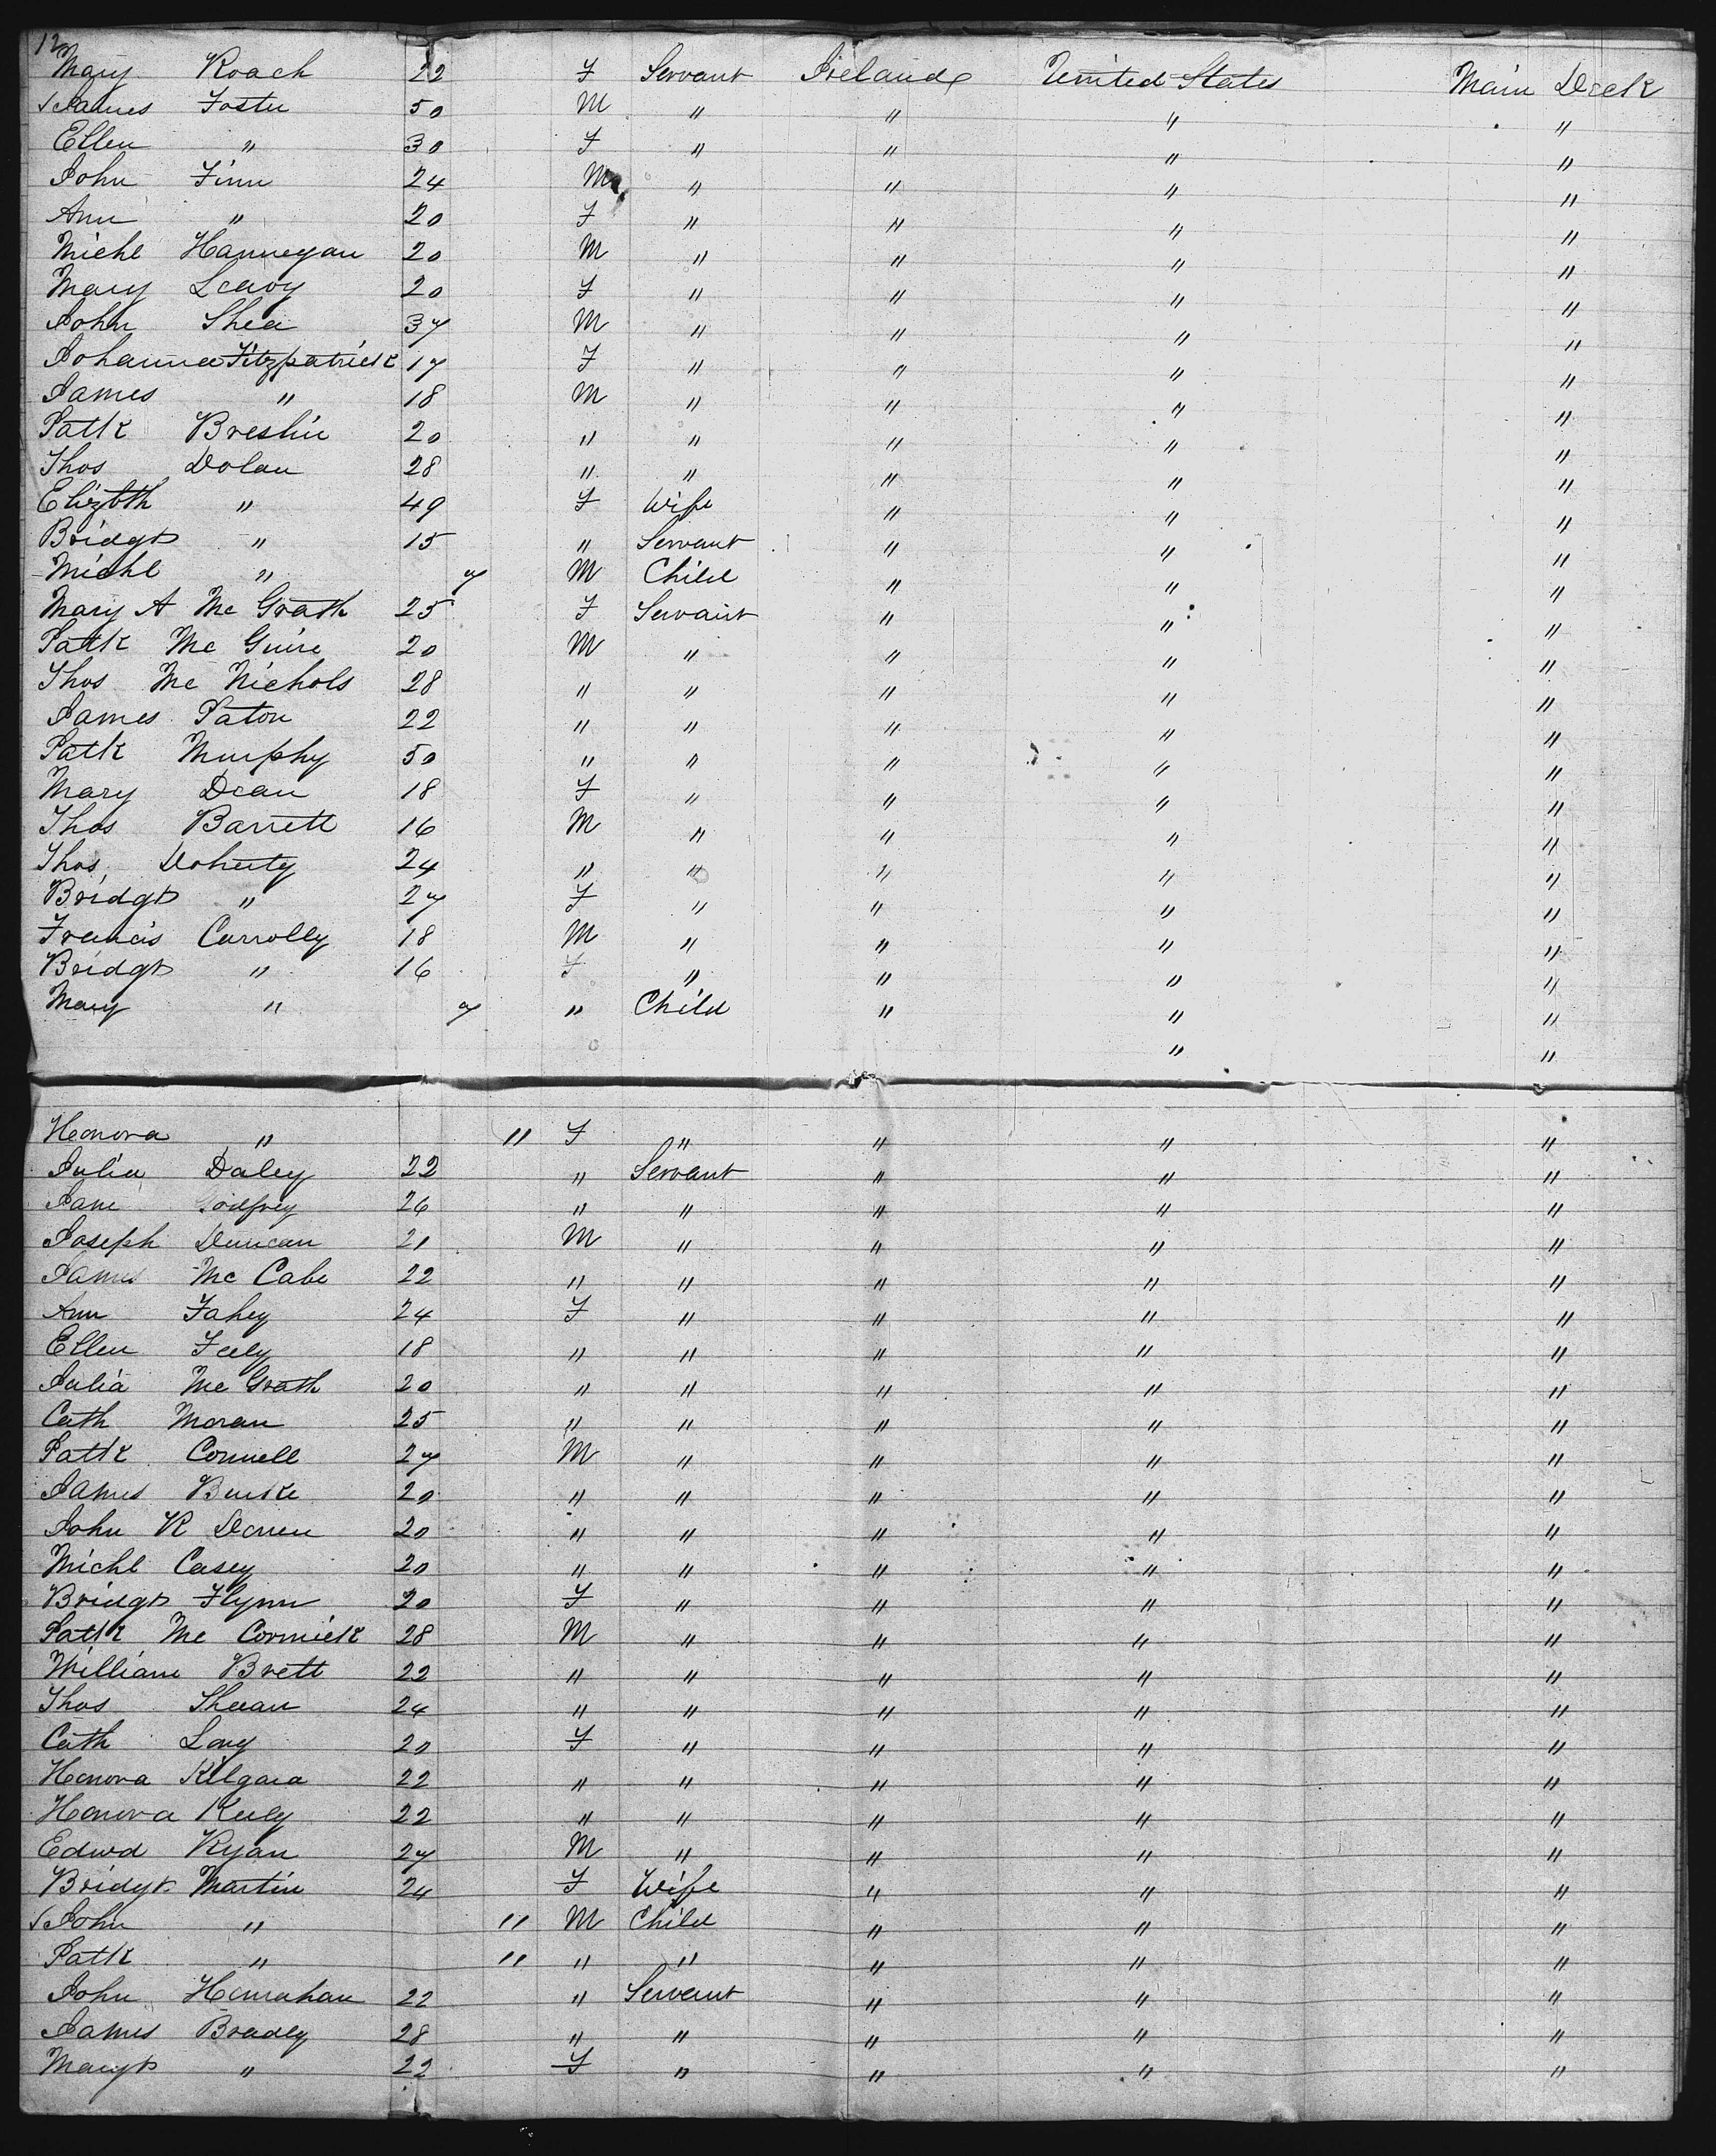 12
Mary Roach 22 F Servant Ireland United States Main Deck
James Foster 50 M " " " "
Ellen " 30 F " " " "
John Finn 24 M " " " "
Ann " 20 F " " " "
Michl Hannegan 20 M " " " "
Mary Leavy 20 F " " " "
John Shea 37 M " " " "
Johanna Fitzpatrick 17 F " " " "
James " 18 M " " " "
Patk Breslin 20 " " " " "
Thos Dolan 28 " " " " "
Elizbth " 49 F Wife " " "
Bridgt " 15 " Servant " " "
Michl " 7 M Child " " "
Mary A Mc Grath 25 F Servant " " "
Patk Mc Guire 20 M " " " "
Thos Mc Nichols 28 " " " " "
James Paton 22 " " " " "
Patk Murphy 50 " " " " "
Mary Dean 18 F " " " "
Thos Barrett 16 M " " " "
Thos Doherty 24 " " " " "
Bridgt " 27 F " " " "
Francis Carrolly 18 M " " " "
Bridgt " 16 F " " " "
Mary " 7 " Child " " "
" "
Honora " " F " " " "
Julia Daley 22 " Servant " " "
Jane Godfrey 26 " " " " "
Joseph Duncan 21 M " " " "
James Mc Cabe 22 " " " " "
Ann Fahey 24 F " " " "
Ellen Feely 18 " " " " "
Julia Mc Grath 20 " " " " "
Cath Moran 25 " " " " "
Patk Connell 27 M " " " "
James Burke 20 " " " " "
John R 20 " " " " "
Michl Casey 20 " " " " "
Bridgt Flynn 20 F " " " "
Patk Mc Cormick 28 M " " " "
William Brett 22 " " " " "
Thos Sheean 24 " " " " "
Cath Long 20 F " " " "
Honora Kilgara 22 " " " " "
Honora Keely 22 " " " " "
Edwd Ryan 27 M " " " "
Bridgt Martin 24 F Wife " " "
John " " M Child " " "
Patk " " " " " " "
John Hanrahan 22 " Servant " " "
James Bradey 28 " " " " "
Margt " 22 F " " " "